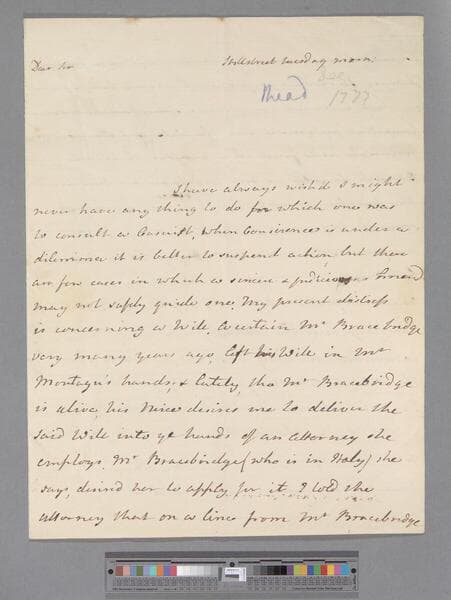 Dear Sir
Hillstreet tuesday morn:
Mead
1777
I have always wish'd I might
never have any thing to do for which one was
to consult a Casuist, When Conscience is under a
dilemma it is better to suspend action, but there
are few cases in which a sincere & judicious friend
may not safely guide one. My present distress
is concerning a Will. A certain Mr Bracebridge
very many years ago left his Will in Mr
Montagu's hands, & lately, tho Mr Bracebridge
is alive, his Niece desires me to deliver the
said Will into ye hands of an attorney she
employs. Mr Bracebridge (who is in Italy) she
says, desired her to apply for it. I told the
attorney that on a line from Mr Bracebridge